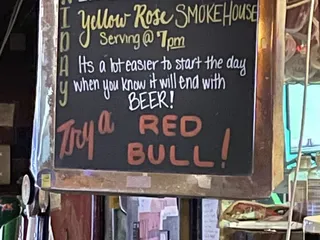 Yellow Rose SMOKEHOUSE
Serving @ 7pm
Its a lot easier to start the day
when you know it will end with
BEER!
Try a RED
BULL!
IDAY